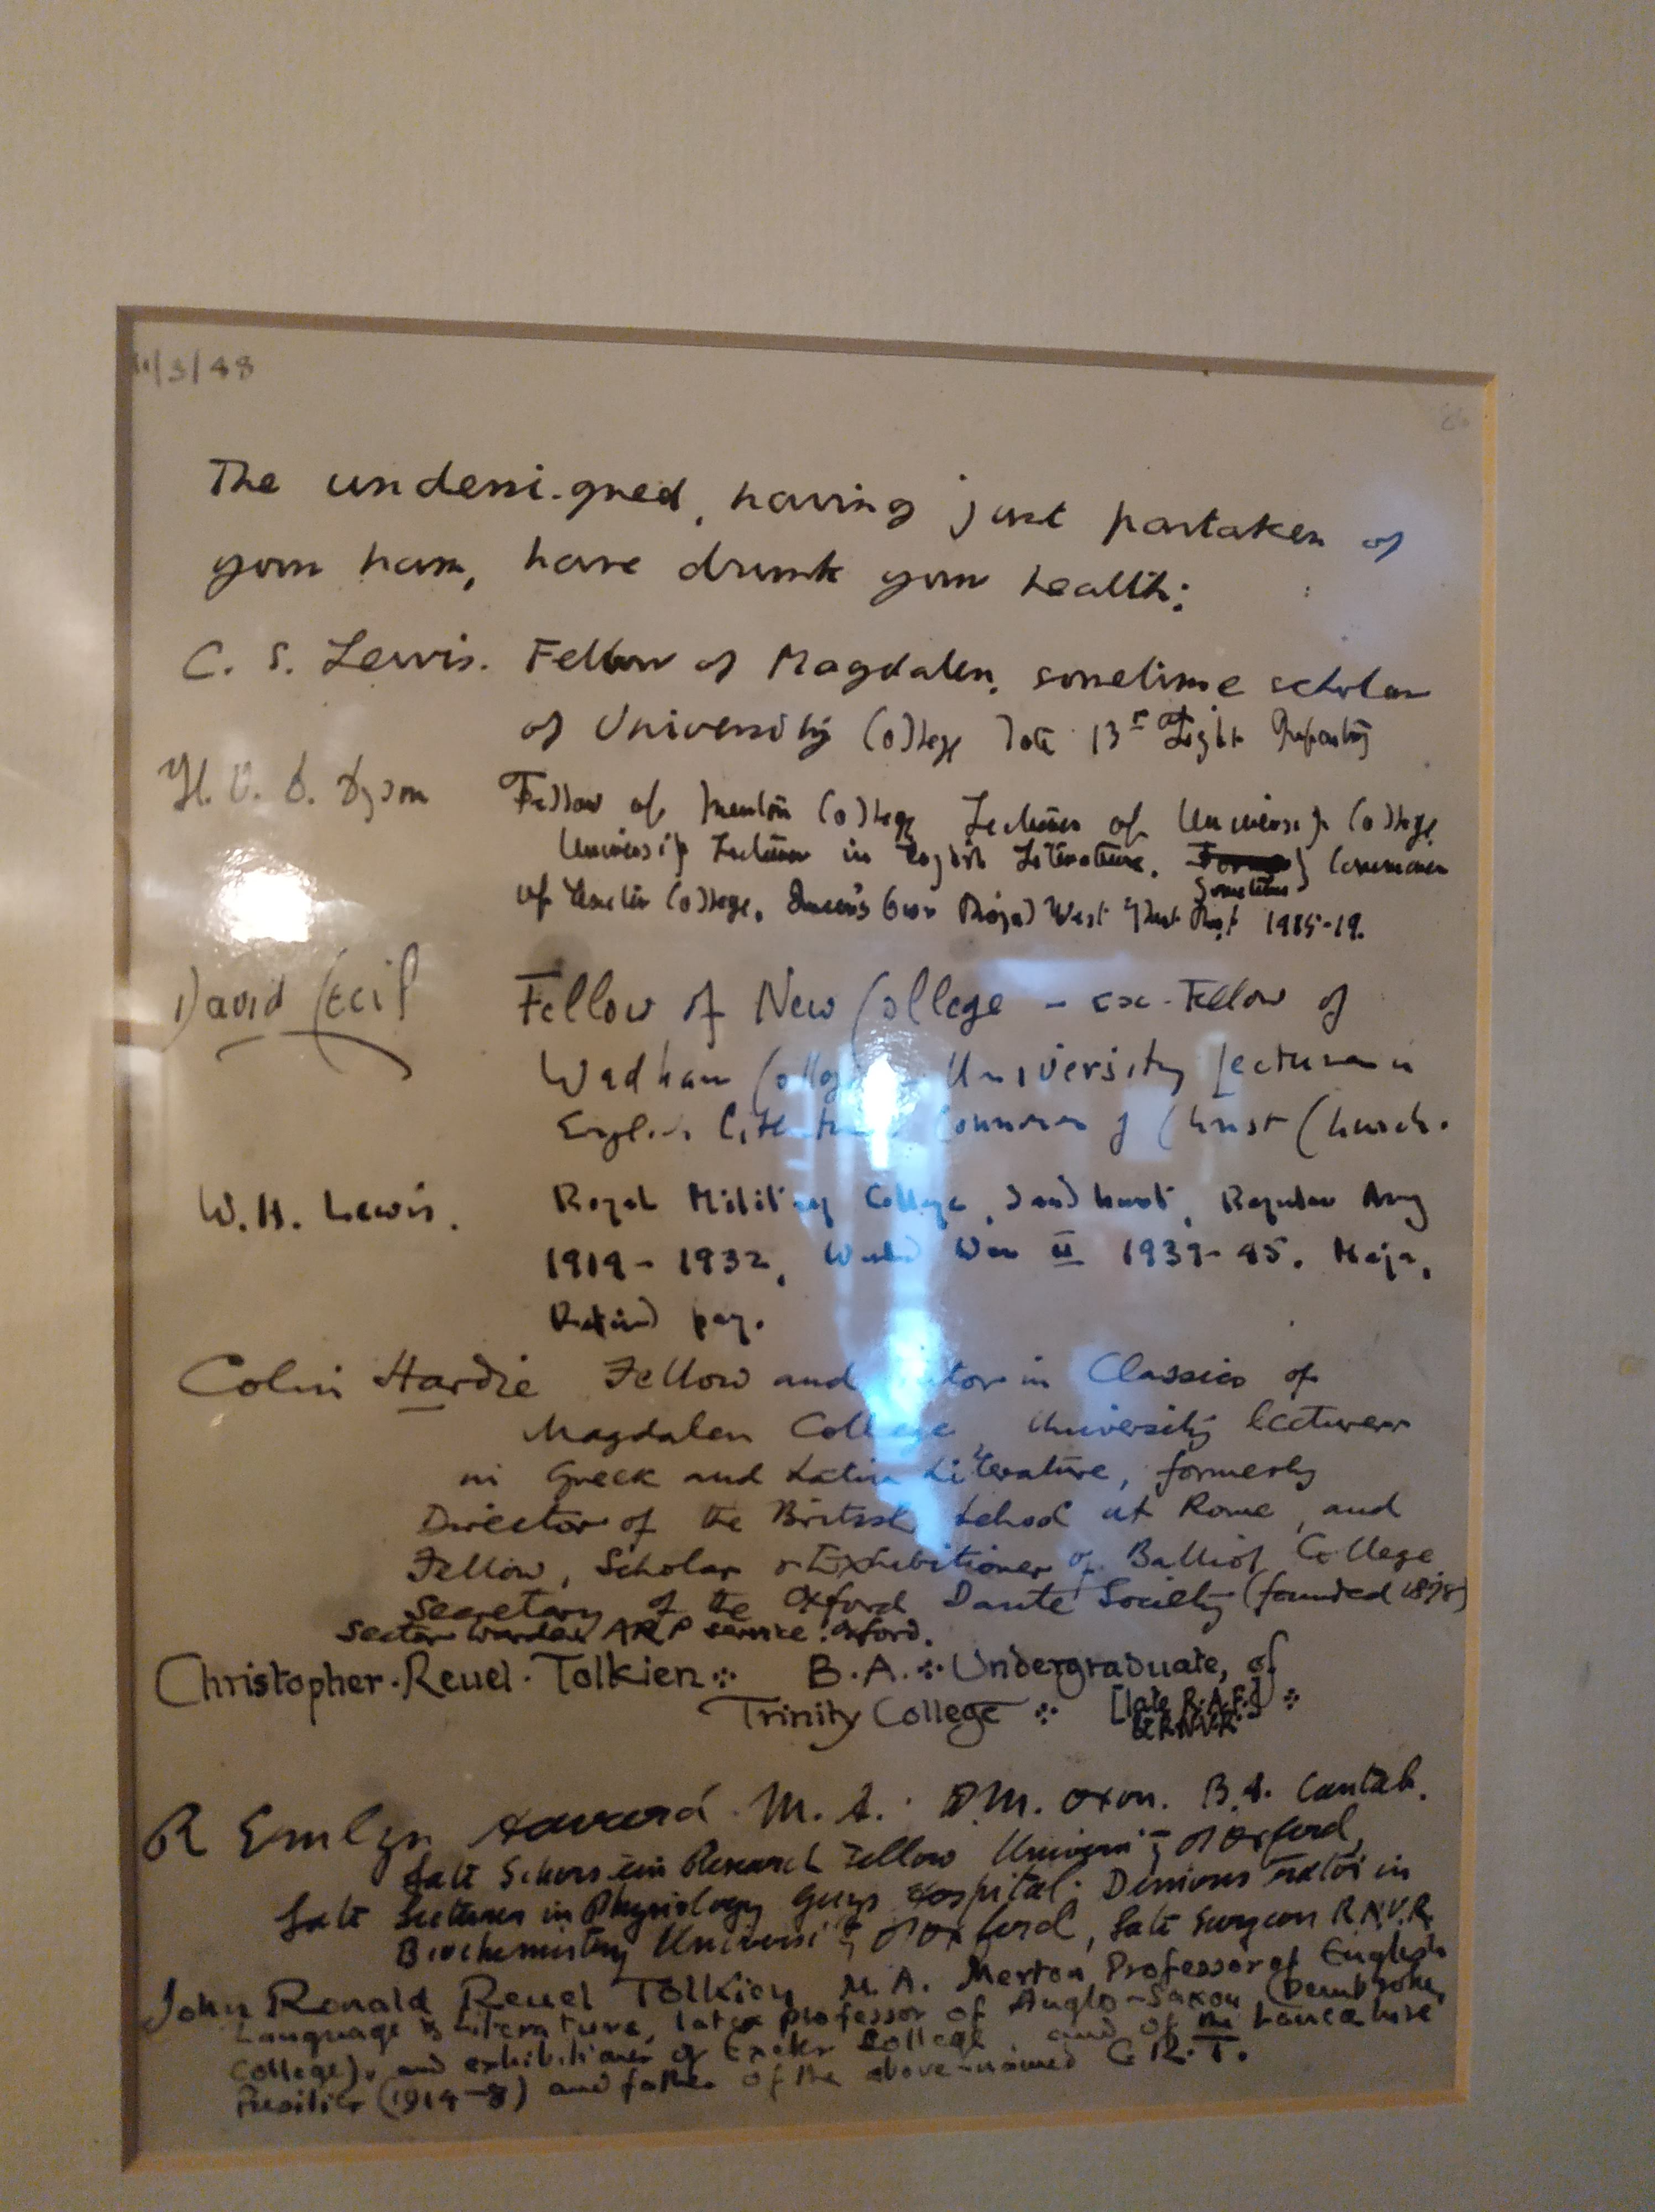 11/3/48
The undersigned, having just partaken of
your ham, have drunk your health:
C. S. Lewis. Fellow of Magdalen, sometime scholar
of University College late 13th Light Infantry
H. V. D. Dyson Fellow of Merton College Lecturer of University College
University Lecturer in English Literature. Sometime Commoner
of Exeter College. Queen's Own Royal West Kent Regt 1915-19.
David Cecil Fellow of New College - ex-Fellow of
Wadham College University Lecturer in
English Literature Commoner of Christ Church.
W.H. Lewis. Royal Military College, Sandhurst, Regular Army
1914-1932, World War II 1939-45. Major,
Retired pay.
Colin Hardie Fellow and Tutor in Classics of
Magdalen College, University lecturer
in Greek and Latin Literature, formerly
Director of the British School at Rome, and
Fellow, Scholar & Exhibitioner of Balliol College
Secretary of the Oxford Dante Society (founded 1876)
Sector Warden ARP service Oxford.
Christopher Reuel Tolkien B.A. Undergraduate, of
Trinity College [late R.A.F.
& R.N.V.R]
R Emlyn Havard. M.A. DM. Oxon. B.A. Cantab.
late Research Fellow University of Oxford,
late Lecturer in Physiology Guys Hospital; Demonstrator in
Biochemistry University of Oxford, late Surgeon R.N.V.R.
John Ronald Reuel Tolkien M.A. Merton Professor of English
Language & Literature, late professor of Anglo-Saxon (Pembroke
College), and exhibitioner of Exeter College, and of the Lancashire
Fusiliers (1914-8) and father of the above-named C.R.T.